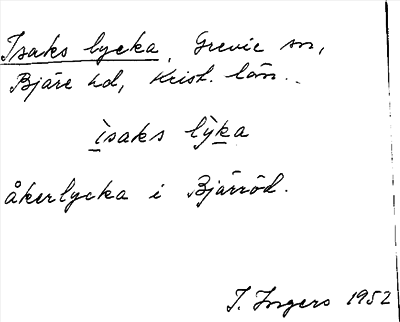 Isaks lycka, Grevie sn,
Bjäre hd, Krist. län.
ìsaks lỳka
åkerlycka i Bjärröd.
I. Ingers 1952